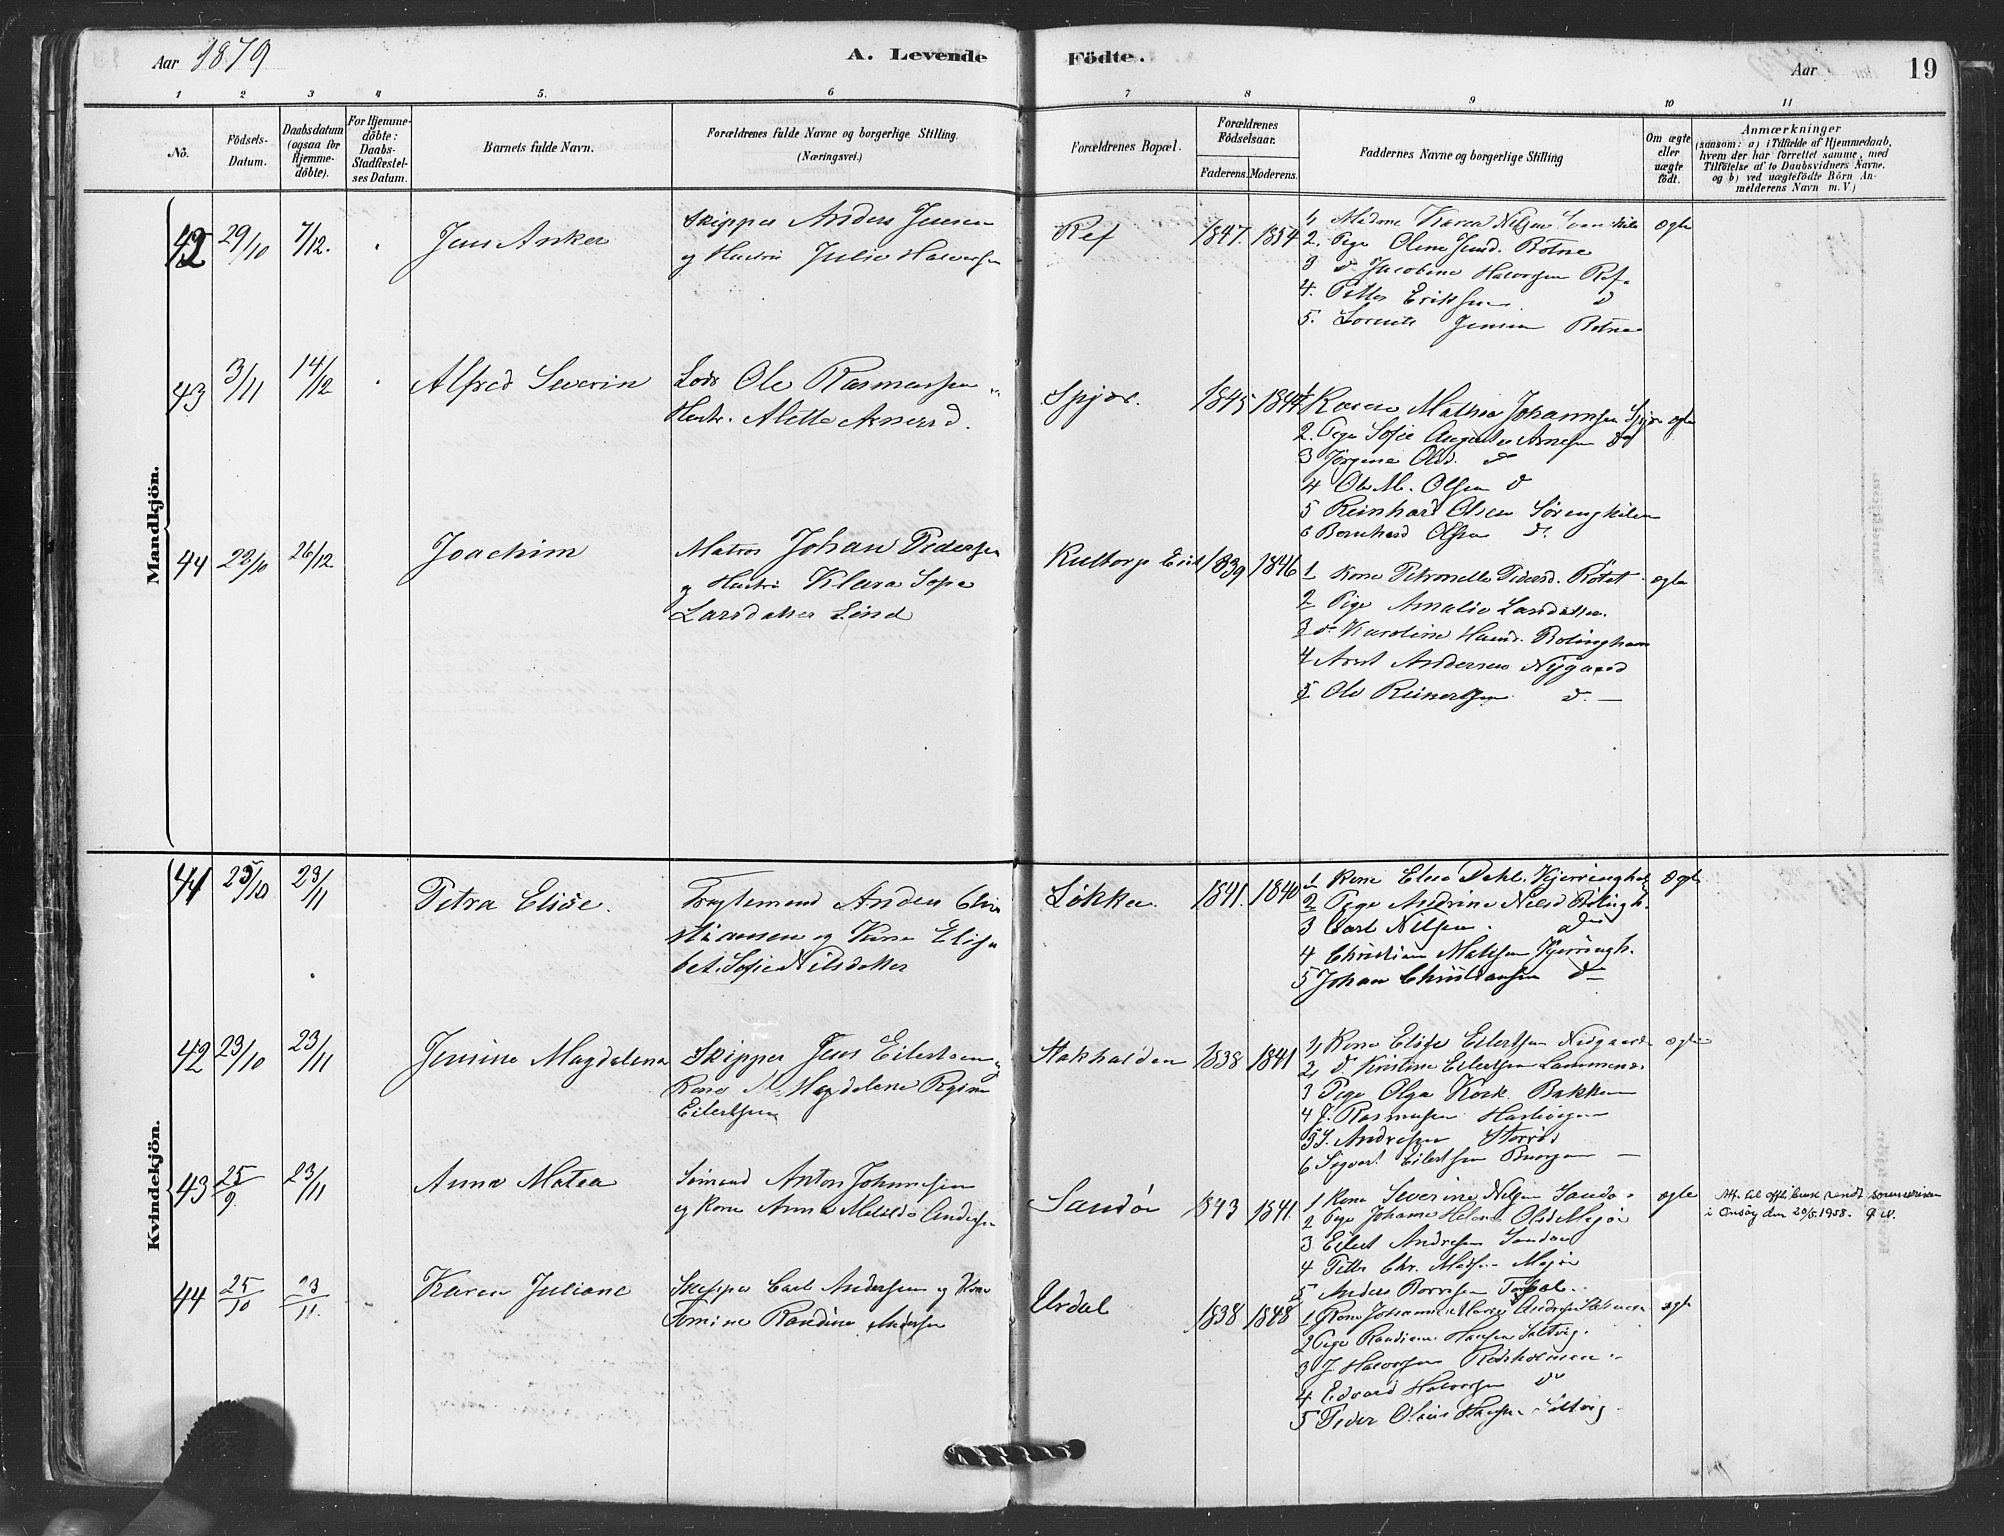 Aar 1879
A. Levende Födte.
Aar
19
1 2 3 4 5. 6 7 8 9 10 11
No.
Födsels-Datum.
Daabsdatum (ogsaa for Hjemme-döbte).
For Hjemme-döbte: Daabs-Stadfæstel-ses Datum.
Barnets fulde Navn.
Forældrenes fulde Navne og borgerlige Stilling.
(Næringsvei.)
Forældrenes Bopæl.
Forældrenes Födselsaar.
Faderens. Moderens.
Faddernes Navne og borgerlige Stilling
Om ægte eller uægte födt.
Anmærkninger
(saasom: a) i Tilfælde af Hjemmedaab,
hvem der har forrettet samme, med
Tilföielse af to Daabsvidners Navne.
og b) ved uægtefödte Börn An-
melderens Navn m. V.)
Mandkjön.
42 29/10 7/12. Jens Anker
Skipper Anders Jensen
og Hustru Julie Halvorsen
Ref 1847. 1854
1, Madme Karen Nilsen
2. Pige Oline Jensd. Botne
3 d. Jacobine Halvorsen Ref.
4. Petter Eriksen d
5. Lorents Jensen Botne
ægte
43 3/11 14/12 Alfred Severin
Lods Ole Rasmussen
Hustr. Alette Arnesd.
Spjær. 1845 1844
1 Karen Mathea Johannsen Spjær ægte
2. Pige Sofie Augusta Arnesen do
3 Jörgine Olsd. d
4 Ole M. Olsen d
5 Reinhard Olsen Sörengkilen
6 Bernhard Olsen d.
44 22/10 26/12 Joachim
Matros Johan Pedersen
og Hustru Klara Sofie
Larsdatter Lund
Kultorp Eie 1839 1846
1 Kone Petronelle Pedersd. Rötet ægte
2 Pige Amalie Larsdatter.
3 d. Karoline Hansd. Bölingshavn
4 Arnt Andersen Nygaard
5 Ole Reinertsen d. —
Kvindekjön.
41 25/10 23/11 Petra Elise.
Fragtemand Anders Chri
stiansen og Kone Elisa
bet. Sofie Nilsdatter
Lökka. 1841. 1840
1 Kone Elise Dahl. Kjerringh. ægte
2 Pige Andrine Nilsd Bölingh.
3 Carl Nilsen. do
4 Christian Matsen Kjerringh.
5 Johan Christiansen do
42 23/10 23/11 Jensine Magdalena
Skipper Jens Eilertsen og
Kone M. Magdalene Regine
Eilertsen
Stakhalden 1838 1841
1, Kone Elise Eilertsen Nesgaard ægte
2, d. Kristine Eilertsen Lammens.
3 Pige Olga Kork Bakken
4 J. Rasmusen
5 S. Andresen Storöd
6 Sigvart Eilertsen —
43 25/9 23/11 Anna Matea
Sömand Anton Johannesen
og Kone Anna Matilda Andersen
Sandö 1843 1841.
1 Kone Severine Nilsen Sandö. ægte
2 Pige Johanne Helene Olsd Mejö
3 Eilert Andresen Sandö
4 Petter Chr. Madsen Mejö
5 Anders Borresen
Att. til offl. bruk sendt
i Onsöy den 20/5.1958.
44 25/10 23/11. Karen Juliane
Skipper Carl Andersen og Kone
Tomine Randine Andersen
Urdal 1838 1848
1 Kone Johanne Marie Andersen ægte
2 Pige Randine Hansen Saltvig.
3 J. Halvorsen Rödsholmen.
4 Edvard Halvorsen do
5 Peder Olaus Hansen Saltvig.